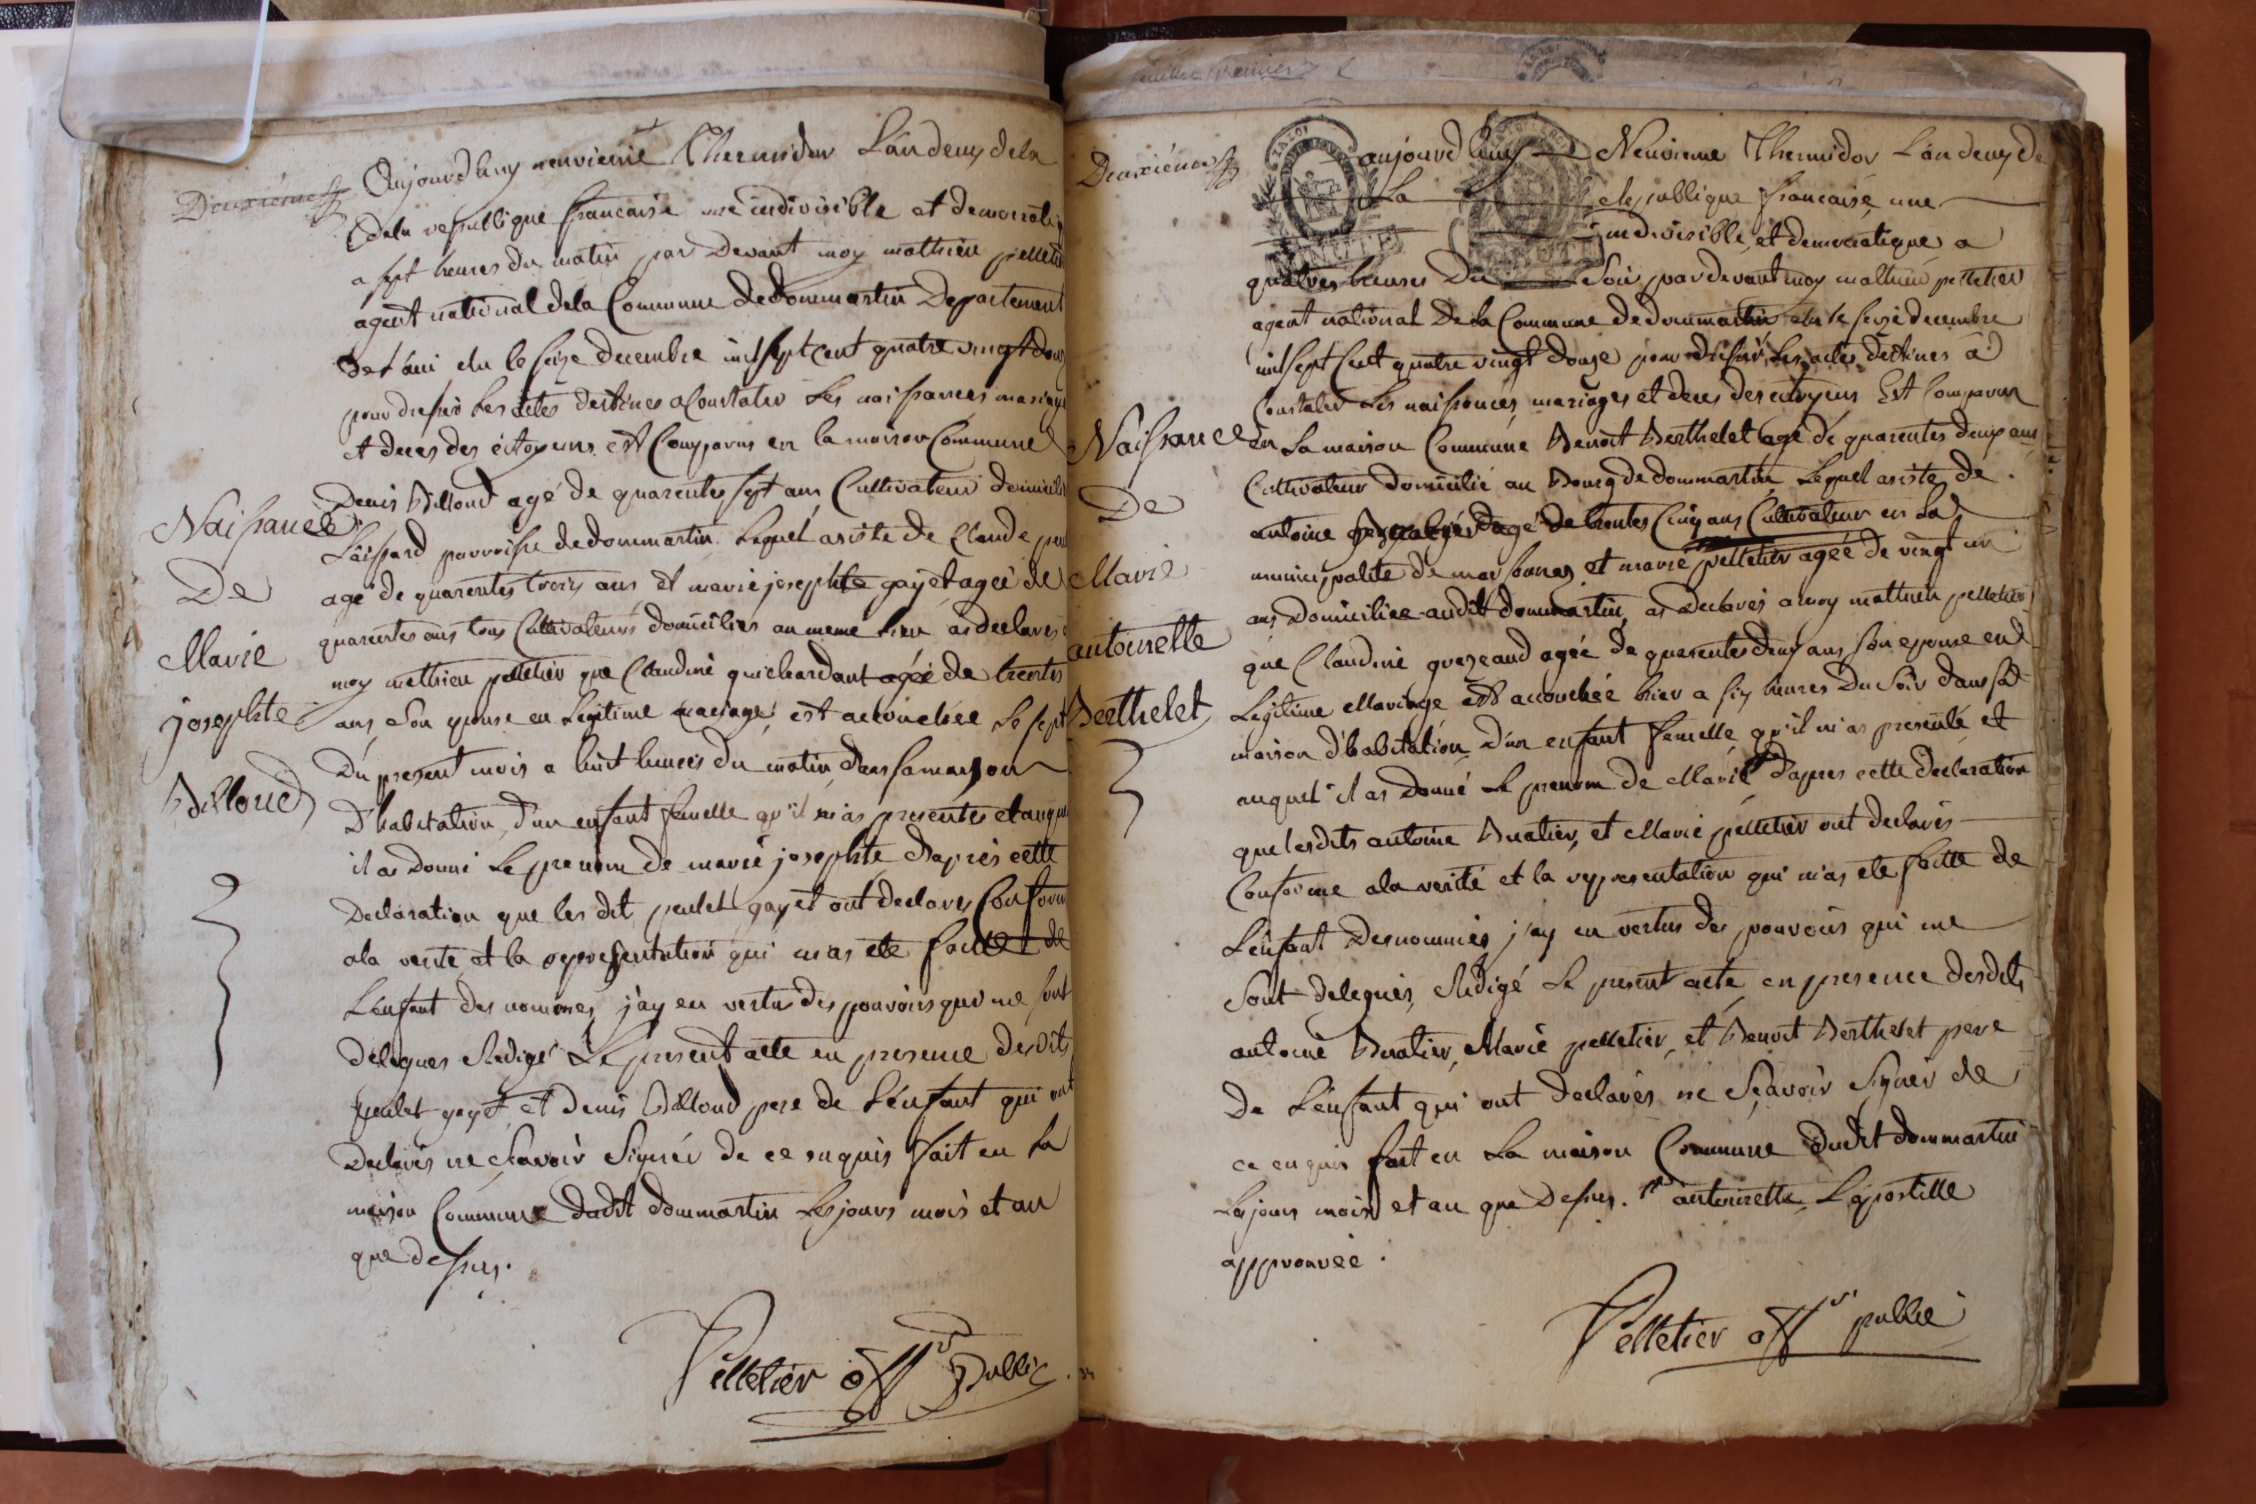 Deuxième
Aujourd'huy neuvieme Thermidor L'an deux dela
dela republique francaise une indivisible et democratiq
a sept heures du matin par Devant moy mathieu pelletie
agent national dela Commune de dommartin Departement
De L'ain elu le seize decembre mil sept cent quatre vingt douz
pour dresser les actes destines a Constater Les naissances mariage
et deces des citoyens est Comparus en la maison Commune
Denis Billoud agé de quarentes sept ans Cultivateur domicilié
parroisse de dommartin Lequel asiste de Claude
age de quarentes trois ans et marie josephte gayet ageé de
quarentes ans tous Cultivateurs domicilies au meme Lieu as declares
moy mathieu pelletier que Claudine guichardant agéé de trentes
ans Son epouse en Legitime mariage est accouchée Le sept
Du present mois a huit heures du matin dans sa maison
D'habitation d'un enfant femelle qu'il m'as presentes et auquel
il as Donné Le prenom de marie josephte D'aprés cette
Declaration que les dit peulet gayet ont declares Conform
ala verite et la representation qui m'as ete faitte de
L'enfant denommes j'ay en vertus des pouvoirs qui me sont
delegues Redigé Le present acte en presence des dits
peulet gayet et denis Billoud pere de L'enfant qui ont
Declarés ne Scavoir Signér de ce enquis Fait en La
maison Commune dudit dommartin Les jours mois et an
que dessus.
Naissance
De
Marie
josephte
Billoud
Pelletier offr Public
feuillet premier
Deuxième
aujourd'huy Neuvieme Thermidor L'an deux de
La Republique francaise une
indivisible et democratique a
quatres heures Du Soir par devant moy mathieu pelletier
agent national De la Commune de dommartin elu le seize decembre
mil sept Cent quatre vingt douze pour dresser Les actes destines a
Constater Les naissances mariages et deces des citoyens Est Comparus
en La maison Commune Benoit Berthelet agé de quarentes deux ans
Cultivateur domicilié au Bourg de dommartin Lequel asiste de
antoine agé de trentes Cinq ans Cultivateur en La
municipalite de marsonnas et marie pelletier agéé de vingt un
ans Domiciliee audit dommartin as Declares a moy mathieu pelletier
que Claudine agéé de quarentes deux ans Son epouse en
Legitime Mariage est accouchéé hier a six heures Du Soir dans sa
maison d'habitation D'un enfant femelle qu'il m'as presenté et
auquel il as Donné Le prenom de Marie D'apres cette declaration
que lesdits antoine Buatier et Marie pelletier ont declarés
Conforme ala verité et la representation qui m'as ete faitte de
L'enfant Denommés j'ay en vertus des pouvoirs qui me
Sont delegués Redigé Le present acte en presence desdits
antoine Buatier, Marie pelletier, et Benoit Berthelet pere
de L'enfant qui ont declarés ne Scavoir Signer de
ce enquis fait en La maison Commune dudit dommartin
Les jours mois et an que Dessus. antoinette L'apostille
approuvéé.
Naissance
De
Marie
antoinette
Berthelet
Pelletier offr public